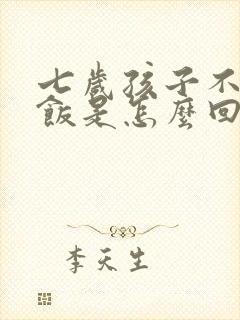 七歲孩子不
飯是怎麼回
李天生